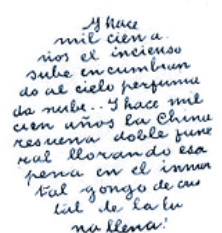 Y hace
mil cien a-
ños el incienso
sube encumbran
do al cielo perfuma
da nube.. Y hace mil
cien años la China
resuena doble fune
ral llorando esa
pena en el inmor
tal gongo de cris
tal de la lu
na llena!